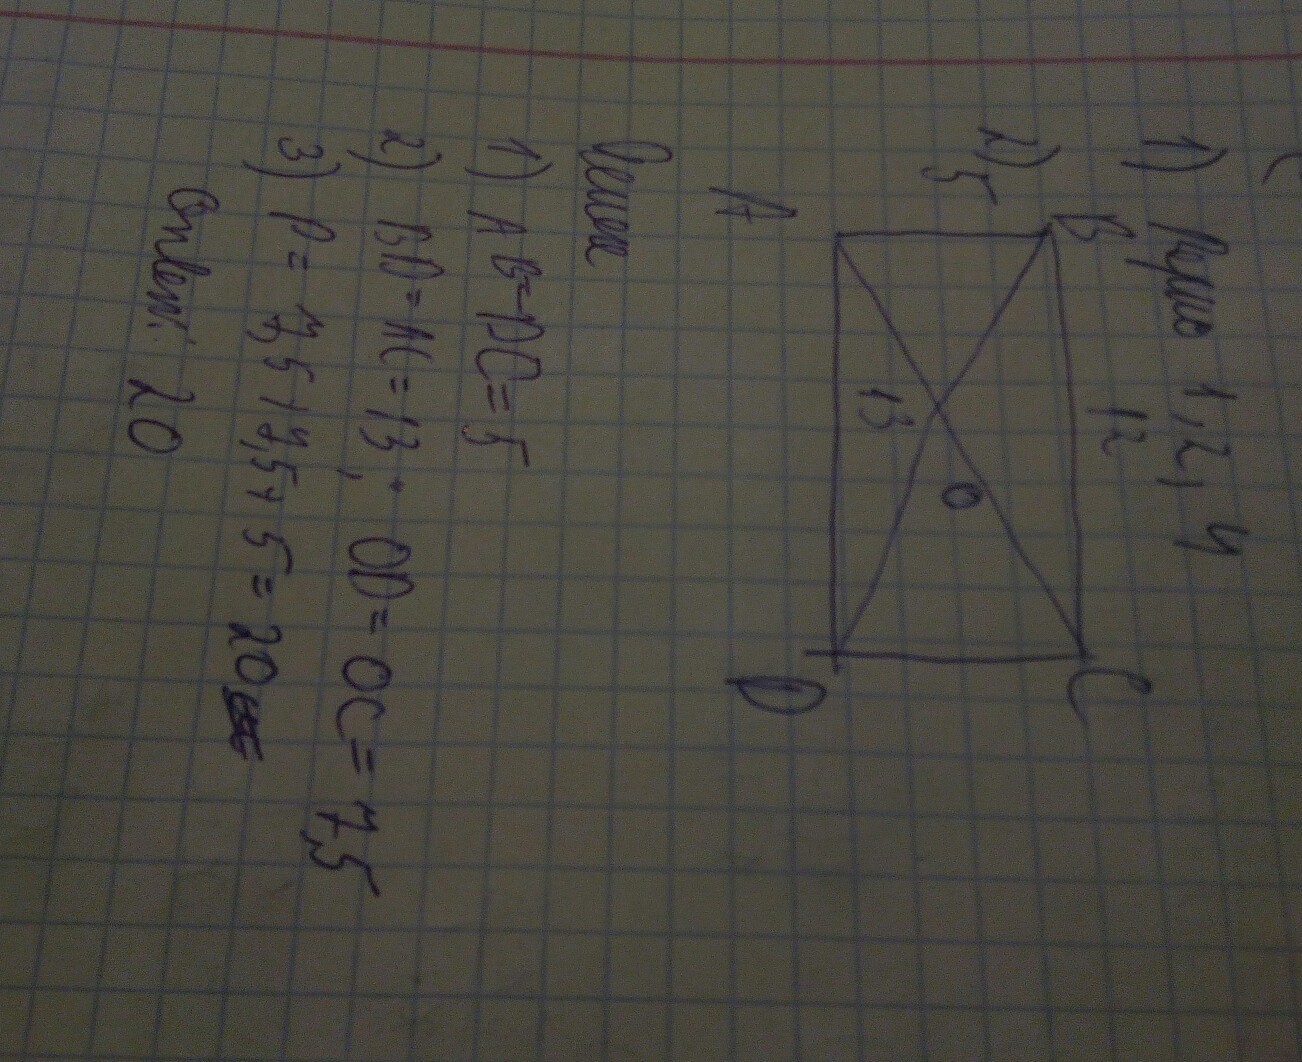 1) Верно 1, 2, 4
2)
B
12
C
5
13
O
A
D
Решен
1) AB=DC=5
2) BD=AC=13, OD=OC=7,5
3) P=7,5+7,5+5=20
Ответ: 20